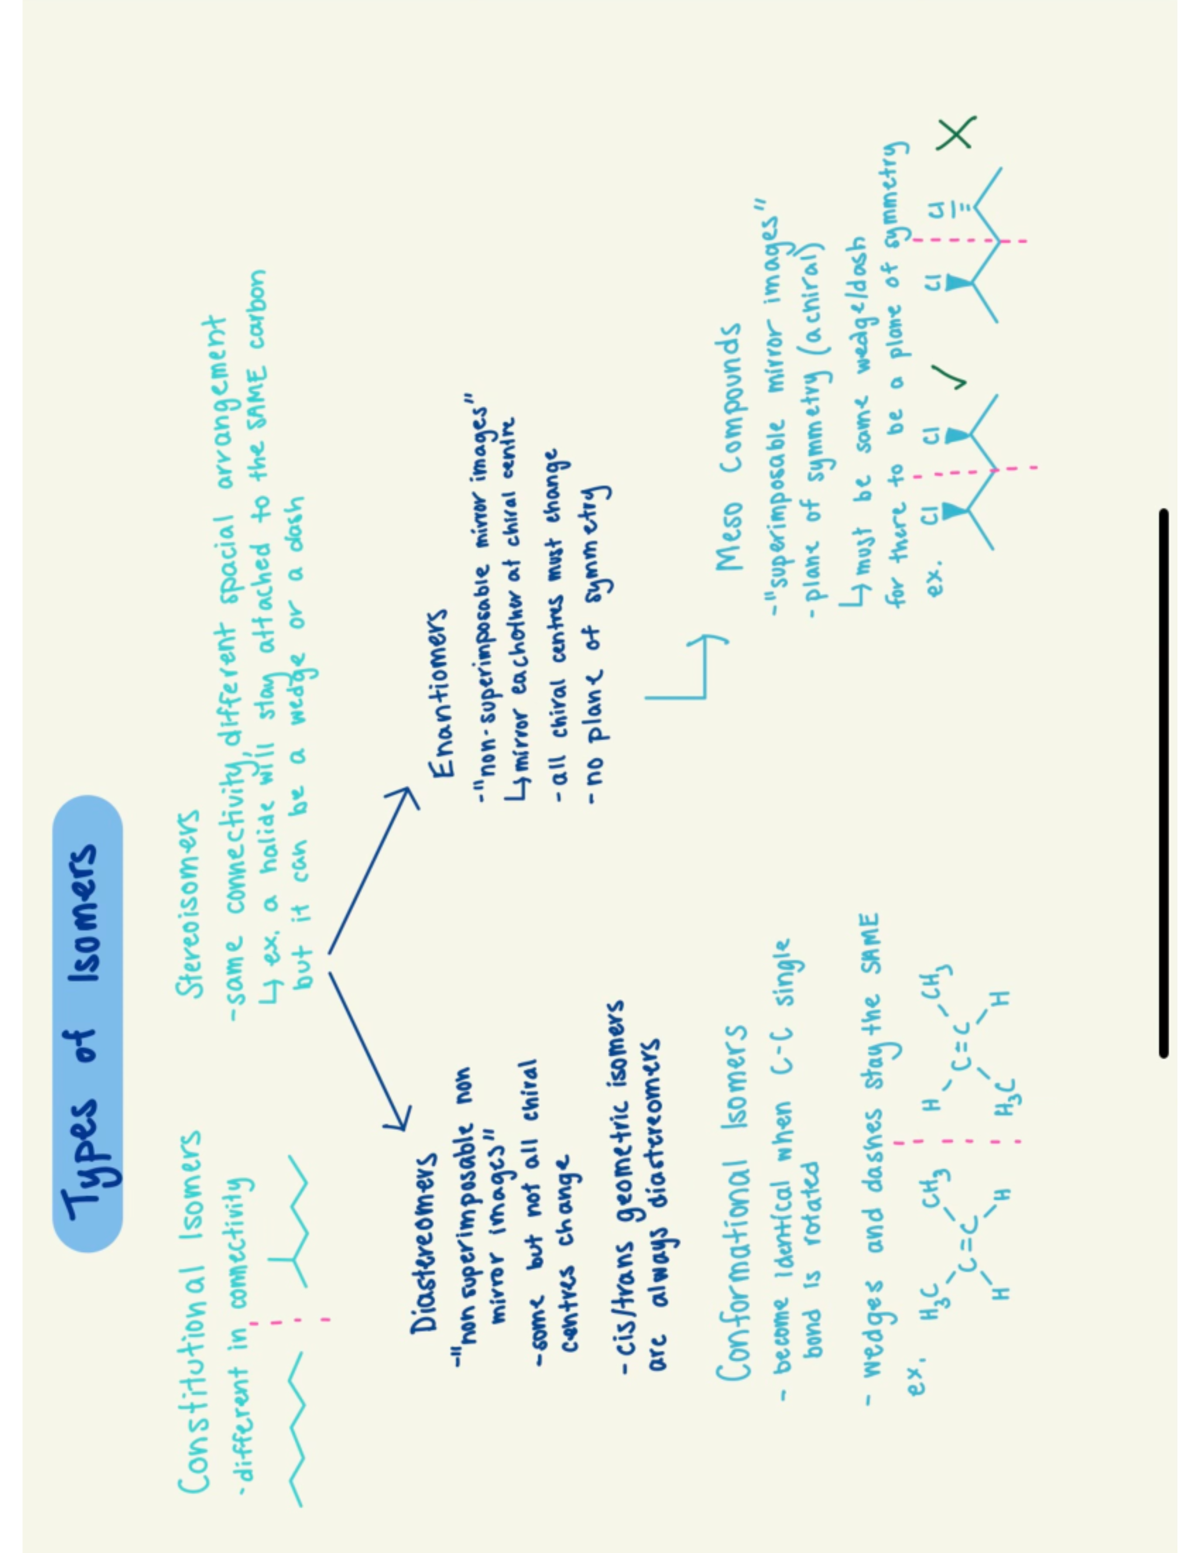 Types of Isomers
Constitutional Isomers
-different in connectivity
Stereoisomers
-same connectivity, different spacial arrangement
↳ ex. a halide will stay attached to the SAME carbon
but it can be a wedge or a dash
Diastereomers
-"non superimposable non
mirror images"
-some but not all chiral
centres change
-cis/trans geometric isomers
are always diastereomers
Enantiomers
-"non-superimposable mirror images"
↳mirror eachother at chiral centre
-all chiral centres must change
-no plane of symmetry
Conformational Isomers
- become identical when C-C single
bond is rotated
- wedges and dashes stay the SAME
ex.
H₃C CH₃
C=C
H H
H CH₃
C=C
H₃C H
Meso Compounds
-"superimposable mirror images"
-plane of symmetry (achiral)
↳ must be same wedge/dash
for there to be a plane of symmetry
ex.
Cl Cl
Cl Cl